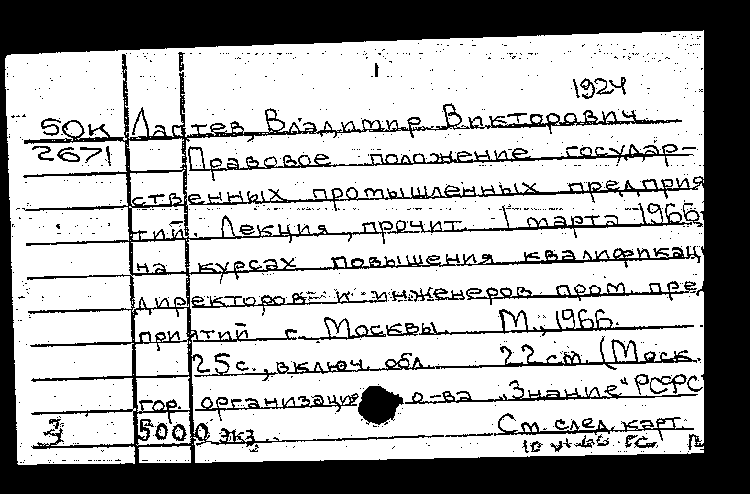 1924
50к Лаптев, Владимир Викторович
2671 Правовое положение государ-
ственных промышленных предприя
тий. Лекция, прочит. 1 марта 1966
на курсах повышения квалификаци
директоров и инженеров пром. пред
приятий г. Москвы. М., 1966.
25 с., включ. обл. 22 см. (Моск.
гор. организаци о-ва "Знание" РСФС
3 5000 экз. См. след. карт.